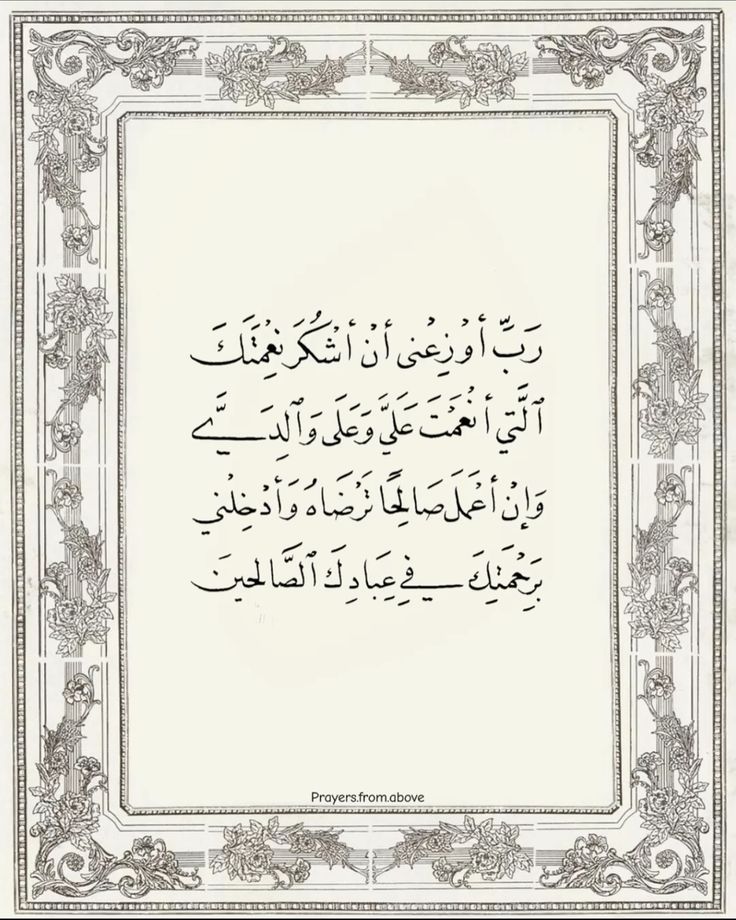 رَبِّ أَوْزِعْنِى أَنْ أَشْكُرَ نِعْمَتَكَ
ٱلَّتِي أَنْعَمْتَ عَلَيَّ وَعَلَى وَٱلِدَيَّ
وَإِنْ أَعْمَلَ صَالِحًا تَرْضَاهُ وَأَدْخِلْنِي
بِرَحْمَتِكَ فِي عِبَادِكَ ٱلصَّالِحِينَ
Prayers.from.above